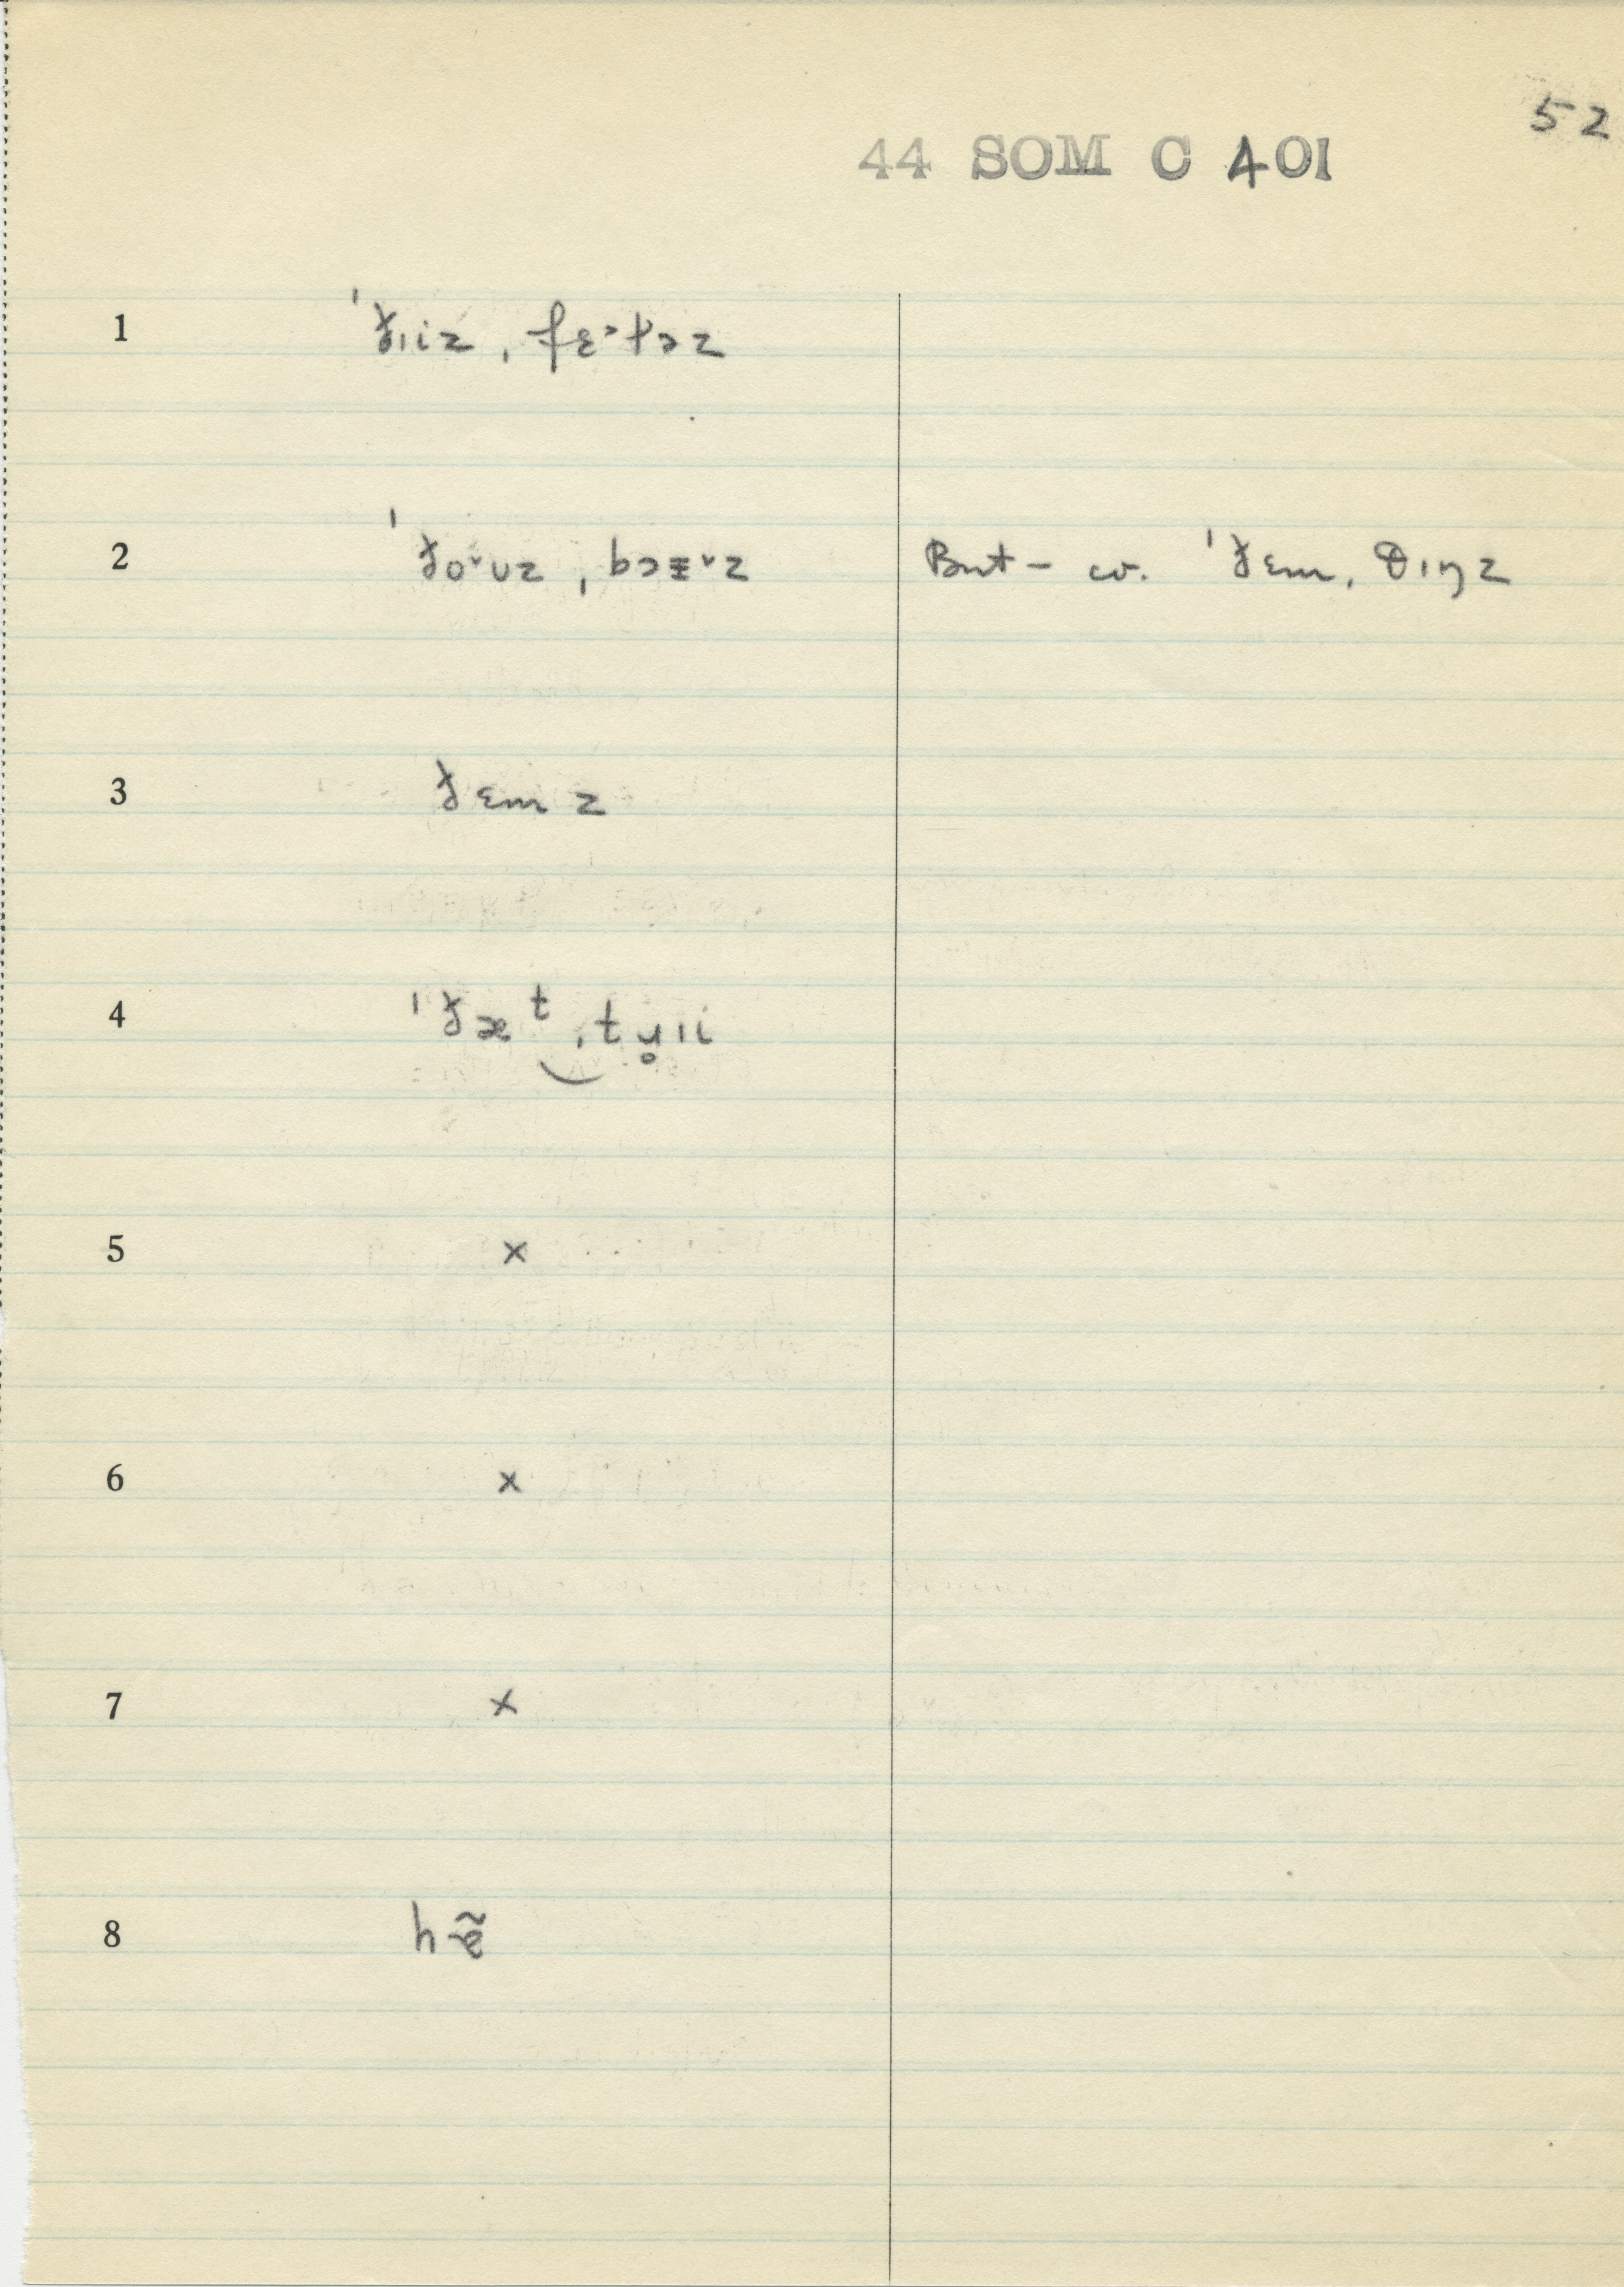 52
44 SOM C 401
1 ˈð̵ɪiz ˌfɛ˃təz
2 ˈð̵o˅ʊz ˌbɔɪ˅z But – cv. ˈð̵ɛm ˌθɪŋz
3 ð̵ɛmz
4 ˈð̵æᵗ‿ˌtɹ̥ɪi
5 ×
6 ×
7 ×
8 h